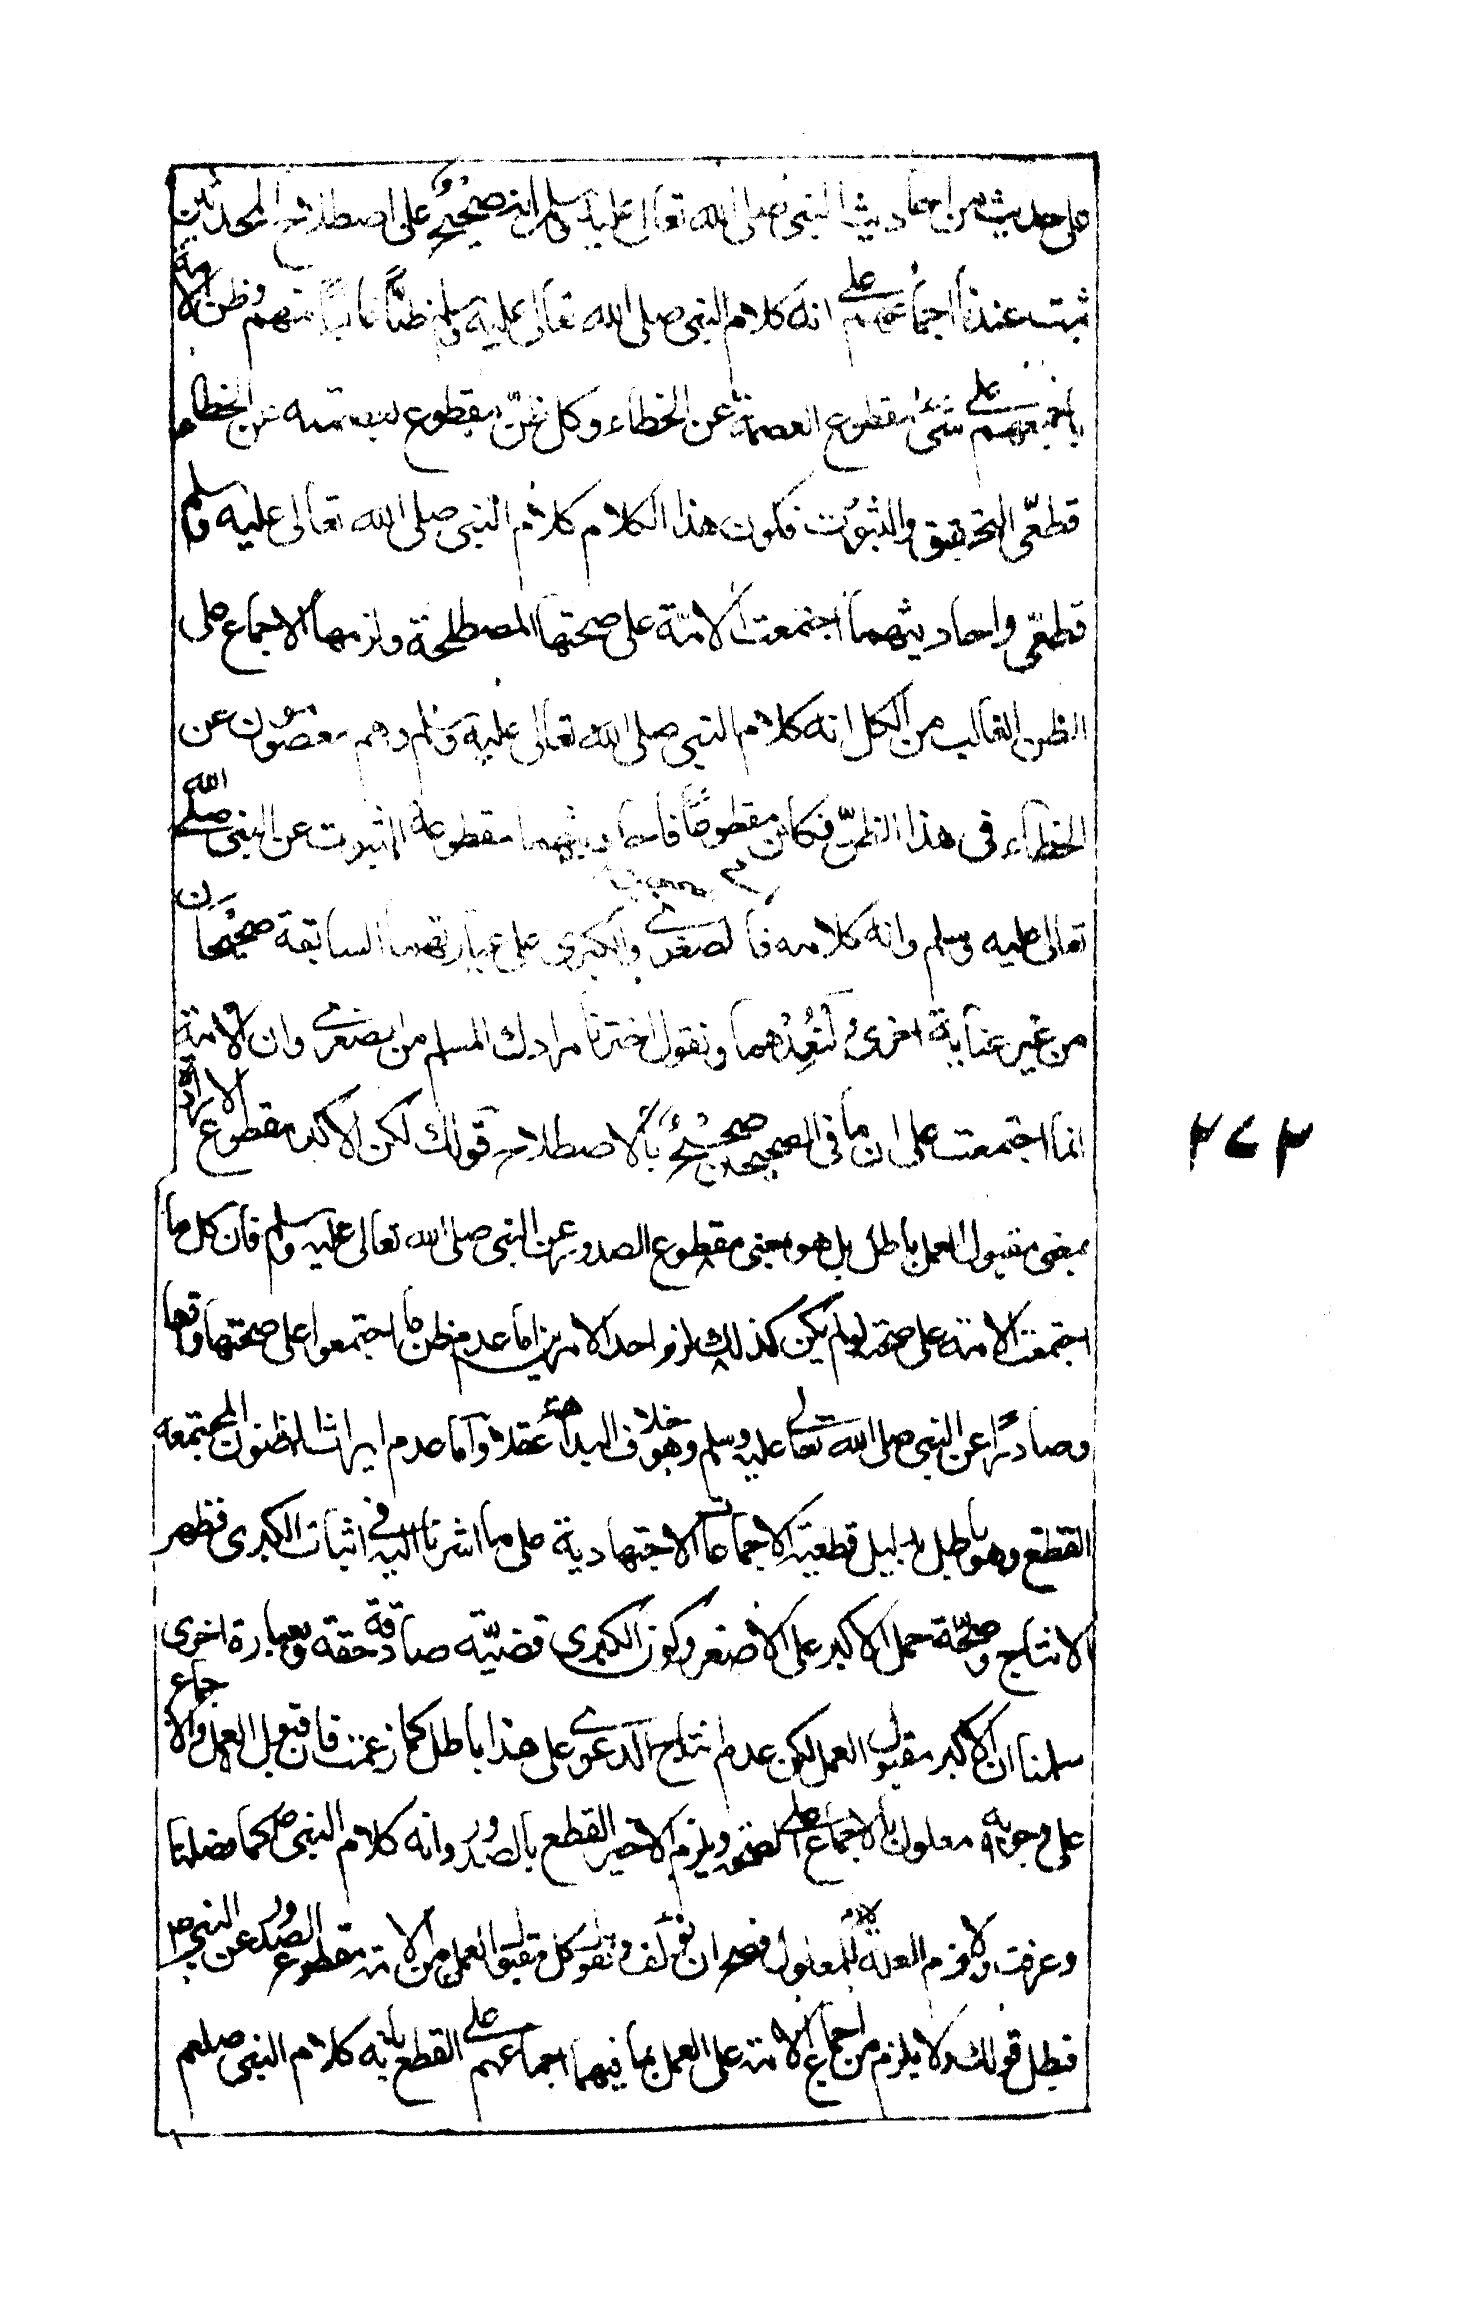 على حديث من احاديث النبي صلى الله تعالى عليه وسلم انه صحيح على اصطلاح المحدثين
ثبت عندنا اجماعهم على انه كلام النبي صلى الله تعالى عليه وسلم ظنًّا غالبًا منهم وظن الامة
باجمعهم على شئ مقطوع العصمة عن الخطاء وكل ظنّ مقطوع بعصمته عن الخطاء
قطعّى التحقيق والثبوت فكون هذا الكلام كلام النبي صلى الله تعالى عليه وسلم
قطعّى واحاديثهما اجتمعت الامّة على صحتها المصطلحة ولزمها الاجماع على
الظن الغالب من الكل انه كلام النبي صلى الله تعالى عليه وسلم وهم معصومون عن
الخطاء فى هذا الظنّ فكان مقطوعًا فاحاديثهما مقطوعة الثبوت عن النبي صلى الله
تعالى عليه وسلم وانه كلامه فالصغرى والكبرى على عبارتهما السابقة صحيحتان
من غير عناية اخرى لنُعِدْهما ونقول اخترنا مرادك المسلم من الصغرى وان الامة
انما اجتمعت على ان ما فى الصحيحين صحيحٌ بالاصطلاح قولك لكن الاكبر مقطوع الارادة
بمعنى مقبول العمل باطل بل هو بمعنى مقطوع الصدور عن النبي صلى الله تعالى عليه وسلم فان كل ما
اجتمعت الامة على صحته لو لم يكن كذلك لزم احد الامرين اما عدم ظن ما اجتمعوا على صحتها واقعا
وصادرًا عن النبي صلى الله تعالى عليه وسلم وهو خلاف البداهة عقلا واما عدم ايراث الظنون المجتمعه
القطع وهو باطل بدليل قطعية الاجماعات الاجتهادية على ما اشرنا اليه فى اثبات الكبرى فظهر
الانتاج وصحّة حمل الاكبر على الاصغر وكون الكبرى قضيّة صادقة حقه وبعبارة اخرى
سلمنا ان الاكبر مقبول العمل لكن عدم انتاج الدعوى على هذا باطل كما زعمت فان قبول العمل والاجماع
على وجوبه معلول بالاجماع على الصحة ويلزم الاخير القطع بالصدور وانه كلام النبي ص كما فصلنا
وعرفت لزوم العلة للمعلول فصح ان نؤلف ونقول كل مقبول العمل من الامة مقطوع الصدور عن النبي ص
فبطل قولك ولا يلزم من اجماع الامة على العمل بما فيهما اجماعهم على القطع بانه كلام النبي صلعم
٢٧٢